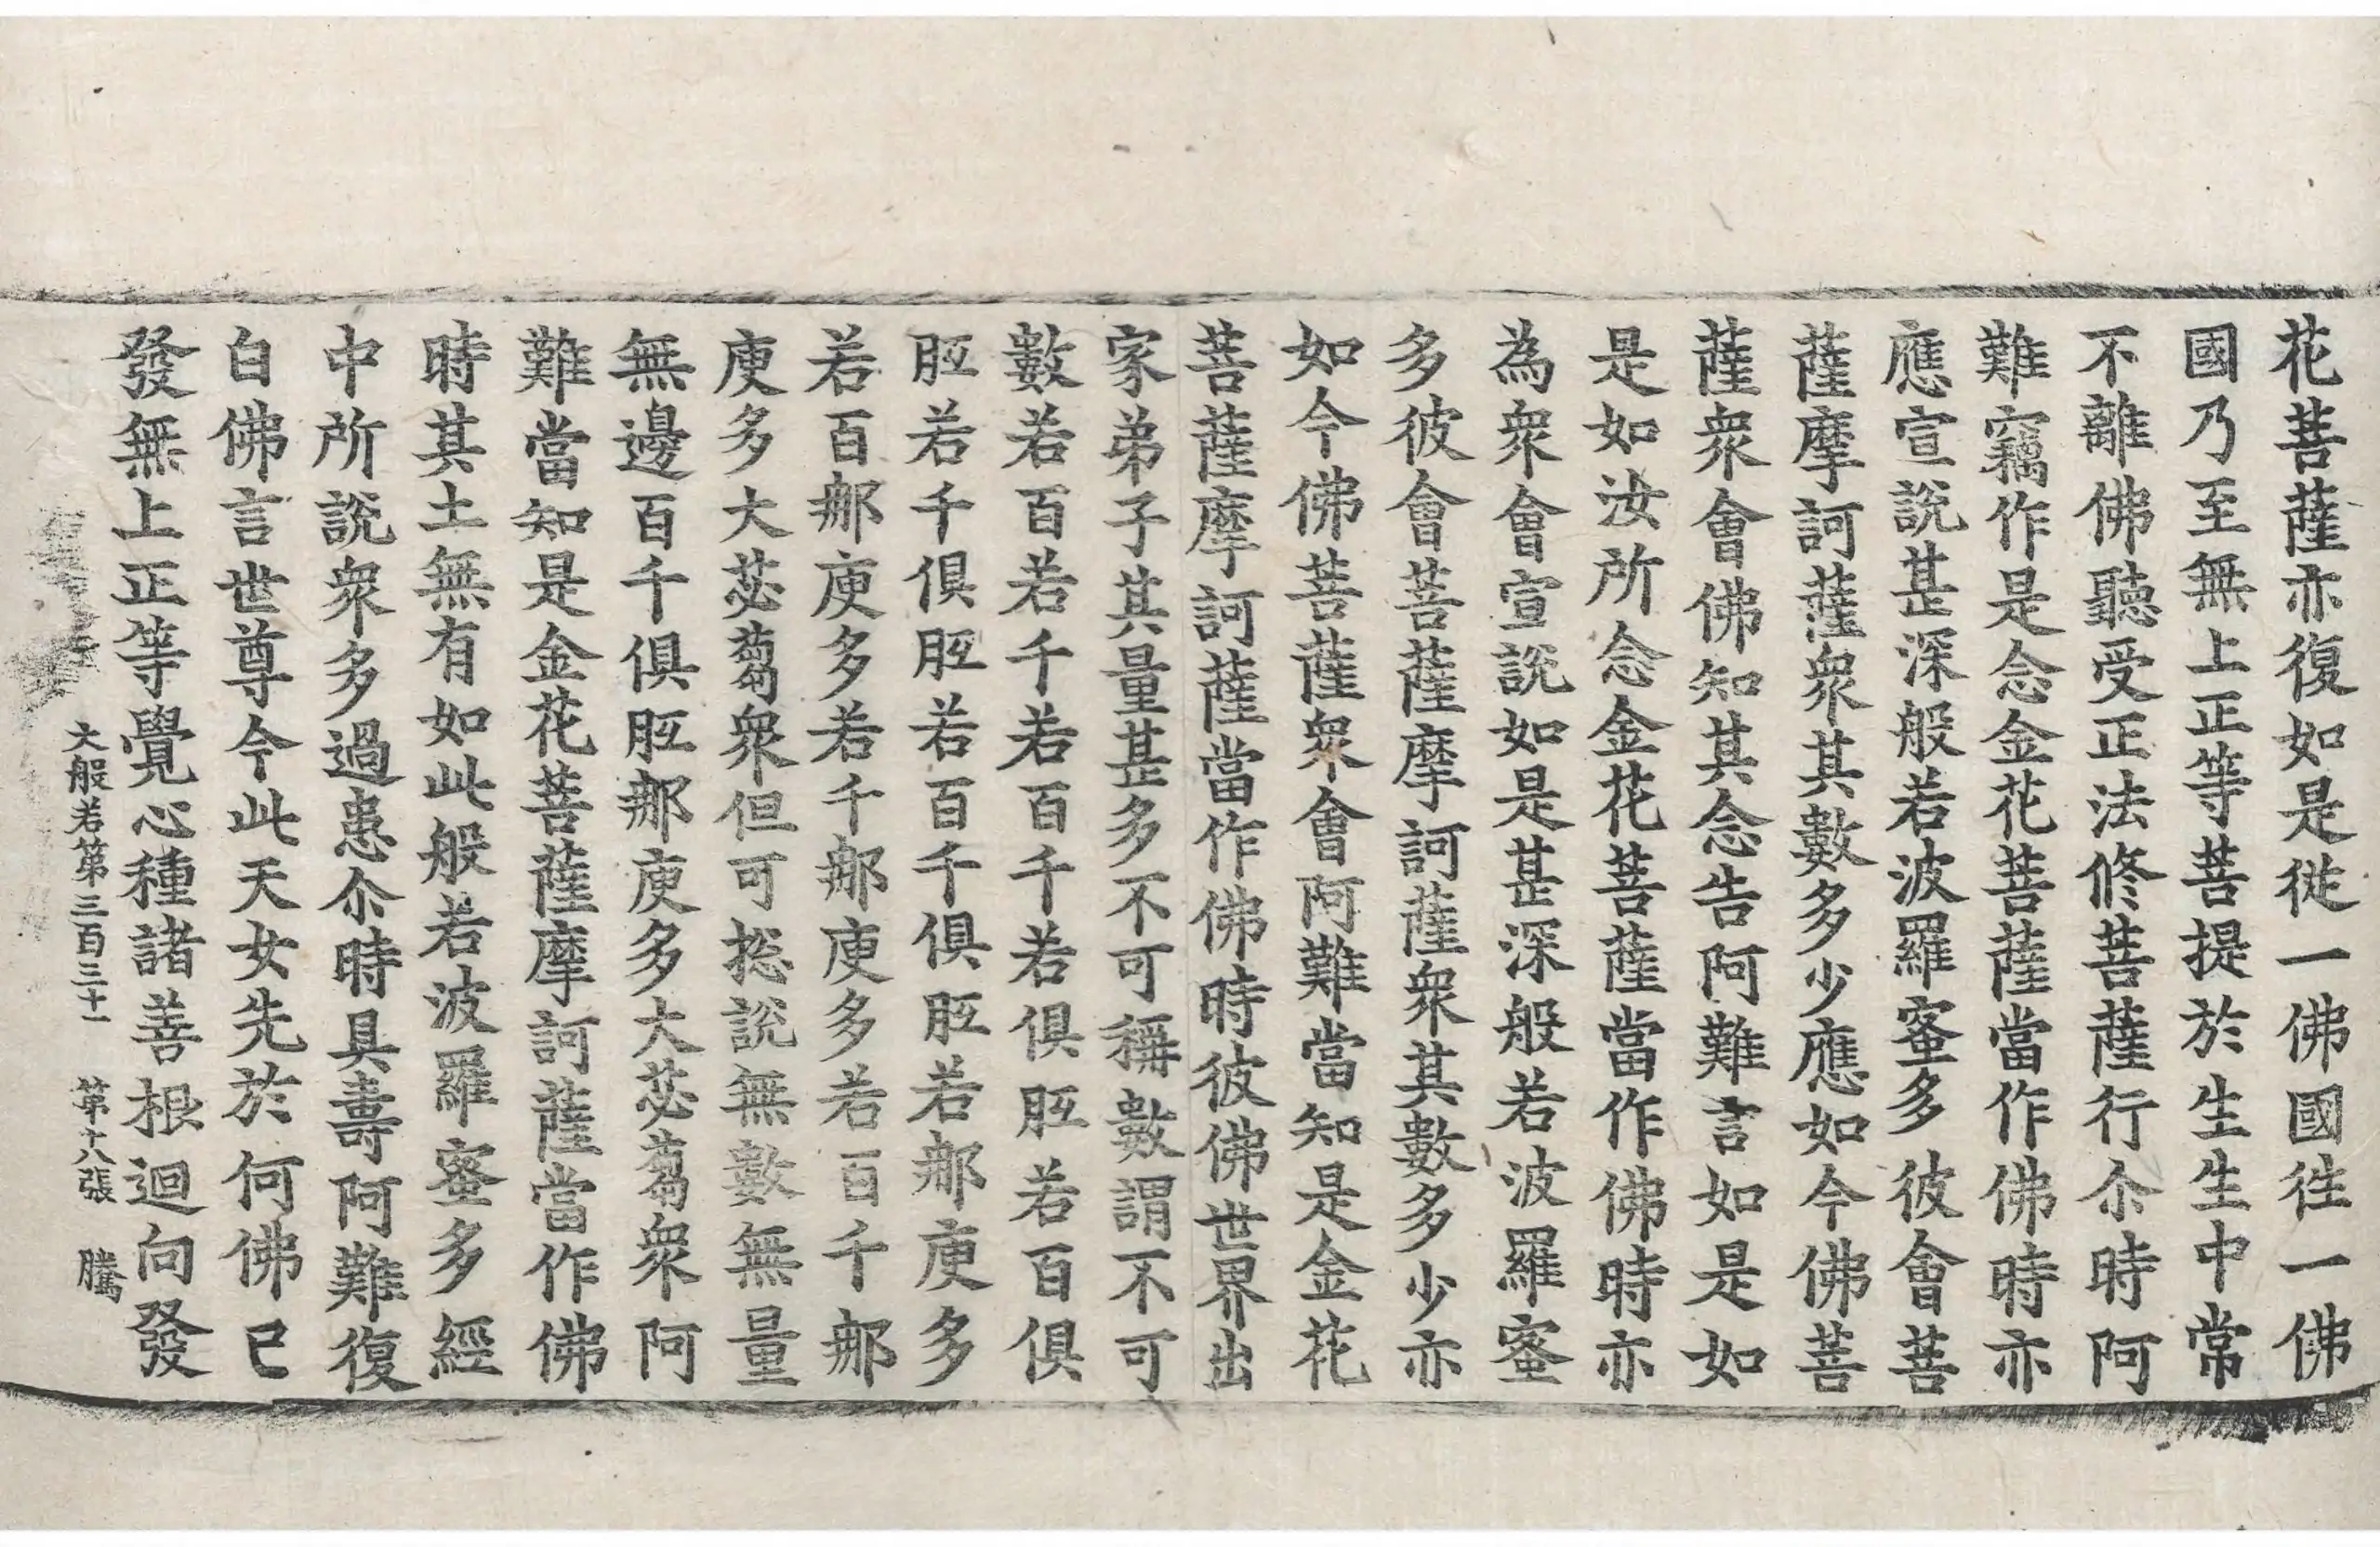 花菩薩亦復如是從一佛國往一佛
國乃至無上正等菩提於生生中常
不離佛聽受正法修菩薩行尒時阿
難竊作是念金花菩薩當作佛時亦
應宣說甚深般若波羅蜜多彼會菩
薩摩訶薩衆其數多少應如今佛菩
薩衆會佛知其念告阿難言如是如
是如汝所念金花菩薩當作佛時亦
為衆會宣說如是甚深般若波羅蜜
多彼會菩薩摩訶薩衆其數多少亦
如今佛菩薩衆會阿難當知是金花
菩薩摩訶薩當作佛時彼佛世界出
家弟子其量甚多不可稱數謂不可
數若百若千若百千若俱胝若百俱
胝若千俱胝若百千俱胝若那庾多
若百那庾多若千那庾多若百千那
庾多大苾蒭衆但可捴說無數無量
無邊百千俱胝那庾多大苾蒭衆阿
難當知是金花菩薩摩訶薩當作佛
時其土無有如此般若波羅蜜多經
中所說衆多過患尒時具壽阿難復
白佛言世尊今此天女先於何佛已
發無上正等覺心種諸善根迴向發
大般若第三百三十一 第十八張 騰